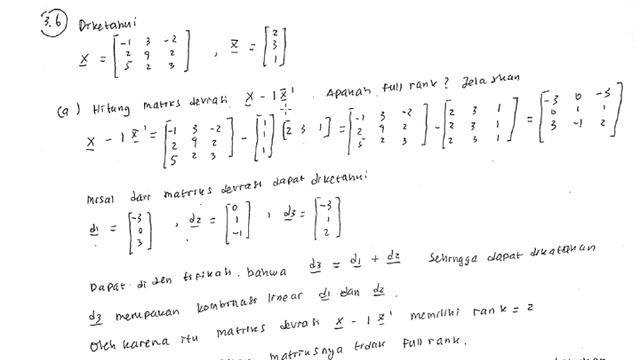 3.6 Diketahui
X = [-1 3 -2; 2 9 2; 5 2 3] , x̄ = [2; 3; 1]
(a) Hitung matriks deviasi X - 1x̄'. Apakah full rank? Jelaskan
X - 1x̄' = [-1 3 -2; 2 9 2; 5 2 3] - [1; 1; 1] [2 3 1] = [-1 3 -2; 2 9 2; 5 2 3] - [2 3 1; 2 3 1; 2 3 1] = [-3 0 -3; 0 1 1; 3 -1 2]
Misal dari matriks deviasi dapat diketahui
d1 = [-3; 0; 3] , d2 = [0; 1; -1] , d3 = [-3; 1; 2]
Dapat di identifikasi bahwa d3 = d1 + d2 sehingga dapat dikatakan
d3 merupakan kombinasi linear d1 dan d2.
Oleh karena itu matriks deviasi X - 1x̄' memiliki rank = 2
matriksnya tidak full rank.